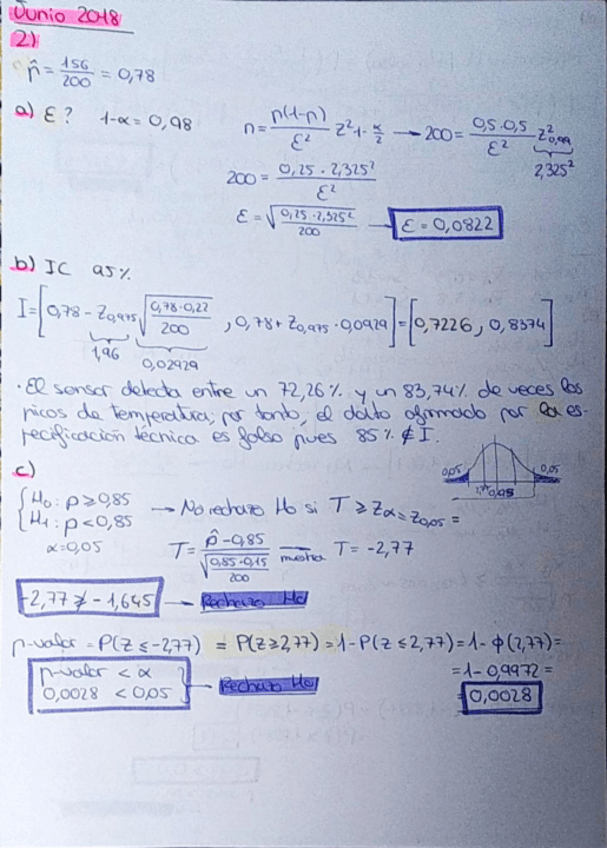 Junio 2018
2)
p̂ = 156/200 = 0,78
a) ε? 1-α = 0,98 n = p(1-p)/ε² z²1-α/2 → 200 = 0,5·0,5/ε² z²0,99
2,325²
200 = 0,25 · 2,325²/ε²
ε = √(0,25 · 2,325²/200) → ε = 0,0822
b) IC 95%
I = [0,78 - z0,975 √(0,78·0,22/200) , 0,78 + z0,975 · 0,0929] = [0,7226, 0,8374]
1,96 0,02929
· El sensor detecta entre un 72,26% y un 83,74% de veces los
picos de temperatura; por tanto, el dato afirmado por la es-
pecificación técnica es falso pues 85% ∉ I.
c)
0,05 0,95 0,05
{H₀: p ≥ 0,85
H₁: p < 0,85 → No rechazo H₀ si T ≥ zα = z0,05 =
α = 0,05 T = (p̂ - 0,85)/√(0,85·0,15/200) muestra T = -2,77
-2,77 ≱ -1,645 → Rechazo H₀
p-valor = P(Z ≤ -2,77) = P(Z ≥ 2,77) = 1 - P(Z ≤ 2,77) = 1 - Φ(2,77) =
= 1 - 0,9972 =
= 0,0028
p-valor < α
0,0028 < 0,05 } → Rechazo H₀